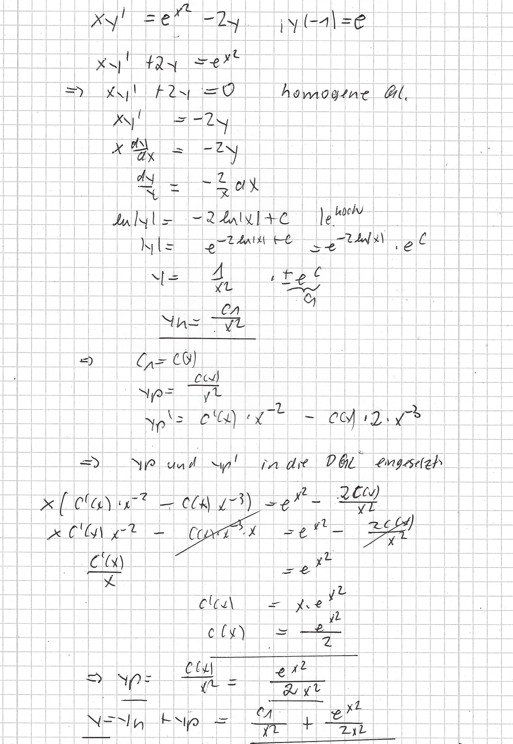 xy' = e^{x^2} - 2y ; y(-1) = e
xy' + 2y = e^{x^2}
=> xy' + 2y = 0 homogene Gl.
xy' = -2y
x dy/dx = -2y
dy/y = -2/x dx
ln|y| = -2 ln|x| + C |e^{hoch}
|y| = e^{-2 ln|x| + C} = e^{-2 ln|x|} · e^C
y = 1/x^2 · ±e^C
C1
yh = C1/x^2
=> C1 = C(x)
yp = C(x)/x^2
yp' = C'(x) · x^{-2} - C(x) · 2 · x^{-3}
=> yp und yp' in die DGL eingesetzt
x(C'(x) · x^{-2} - C(x) x^{-3}) = e^{x^2} - 2C(x)/x^2
x C'(x) x^{-2} - C(x) · x^{-3} · x = e^{x^2} - 2C(x)/x^2
C'(x)/x = e^{x^2}
C'(x) = x · e^{x^2}
C(x) = e^{x^2}/2
=> yp = C(x)/x^2 = e^{x^2}/2x^2
y = yh + yp = C1/x^2 + e^{x^2}/2x^2